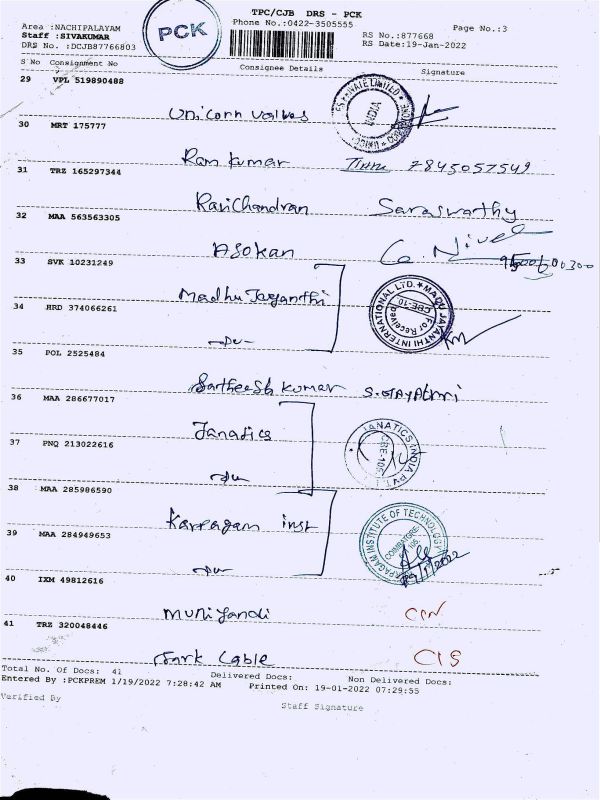 TPC/CJB DRS - PCK
Area :NACHIPALAYAM
Phone No.:0422-3505555
Page No.:3
Staff :SIVAKUMAR
RS No.:877668
DRS No. :DCJB87766803
RS Date:19-Jan-2022
PCK
S No Consignment No Consignee Details Signature
29 VPL 519890488
Unicorn valves
30 MRT 175777
Ram kumar 7845057549
31 TRZ 165297344
Ravichandran Saraswathy
32 MAA 563563305
Asokan
33 SVK 10231249
Madhu Jayanthi
MADU JAYANTHI INTERNATIONAL LTD.
For Received
CBE-10
34 HRD 374066261
35 POL 2525484
Sartheesh kumar S.GAYATHRI
36 MAA 286677017
Janatics
JANATICS INDIA PVT.
37 PNQ 213022616
38 MAA 285986590
Karpagam inst
KARPAGAM INSTITUTE OF TECHNOLOGY
COIMBATORE
39 MAA 284949653
40 IXM 49812616
Muniyandi
41 TRZ 320048446
Cable
Total No. Of Docs: 41 Delivered Docs: Non Delivered Docs:
Entered By :PCKPREM 1/19/2022 7:28:42 AM Printed On: 19-01-2022 07:29:55
Verified By
Staff Signature